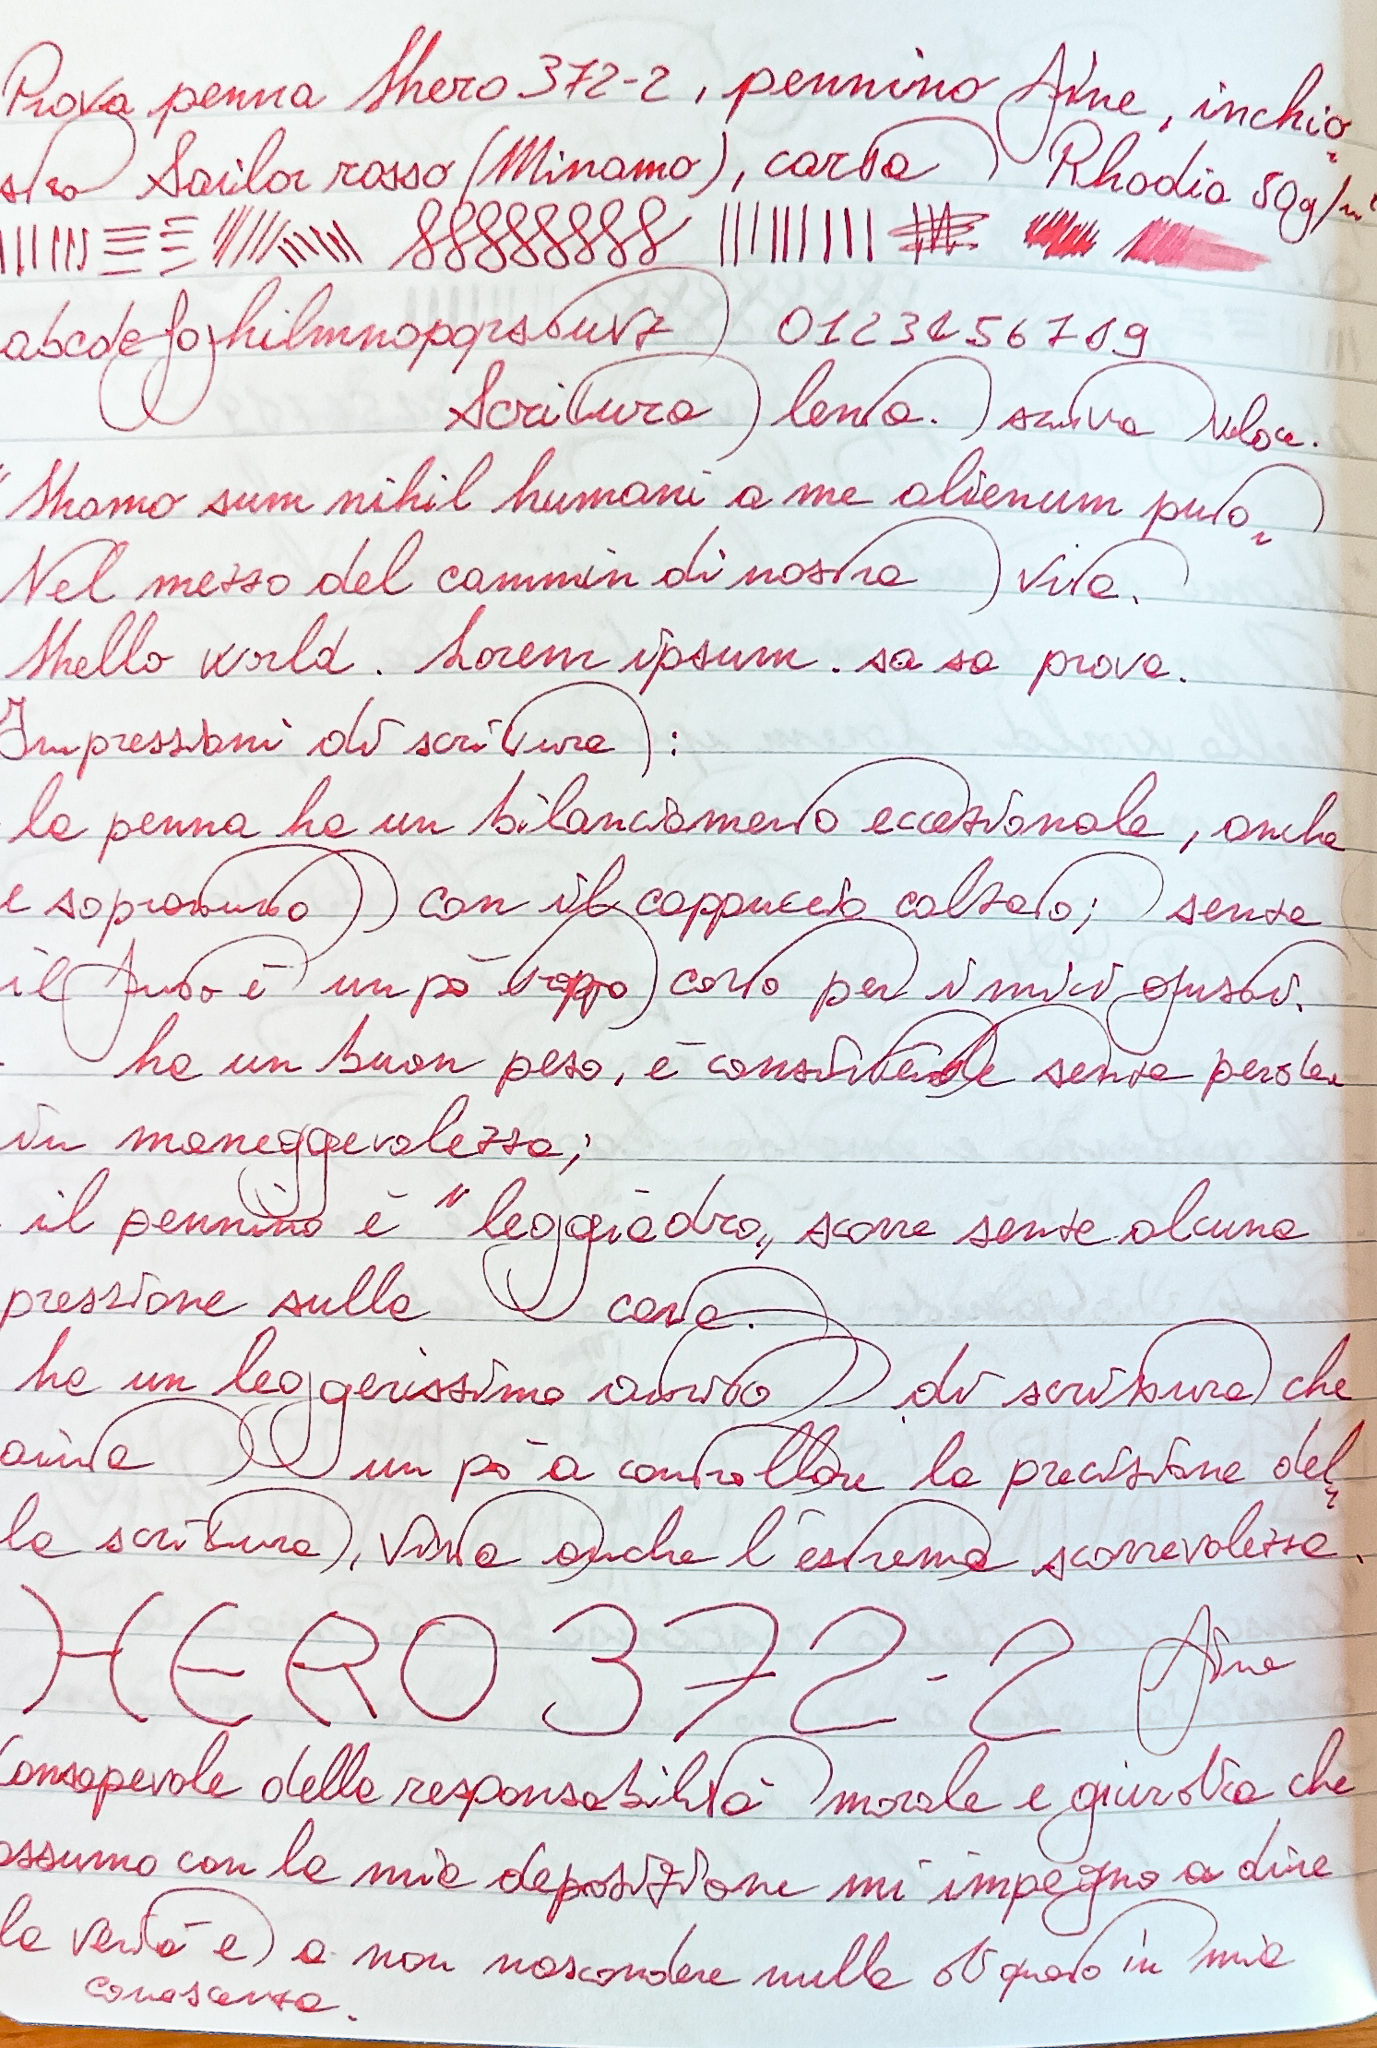 Prova penna Hero 372-2, pennino fine, inchio
stro Sailor rosso (Minamo), carta Rhodia 80g/m²
abcdefghilmnopqrstuvz 0123456789
Scrittura lenta. scrittura veloce.
"Homo sum nihil humani a me alienum puto
Nel mezzo del cammin di nostra vita.
Hello world. Lorem ipsum. sa sa prova.
Impressioni di scrittura:
la penna ha un bilanciamento eccezionale, anche
e soprattutto con il cappuccio calzato; senza
il fusto è un pò troppo corto per i miei gusti.
- ha un buon peso, è consistente senza perdere
in maneggevolezza;
- il pennino è "leggiadro„ scorre senza alcuna
pressione sulla carta.
ha un leggerissimo attrito di scrittura che
aiuta un pò a controllare la precisione del
la scrittura, vista anche l'estrema scorrevolezza.
HERO 372-2 fine
Consapevole della responsabilità morale e giuridica che
assumo con la mia deposizione mi impegno a dire
la verità e a non nascondere nulla di quanto in mia
conoscenza.